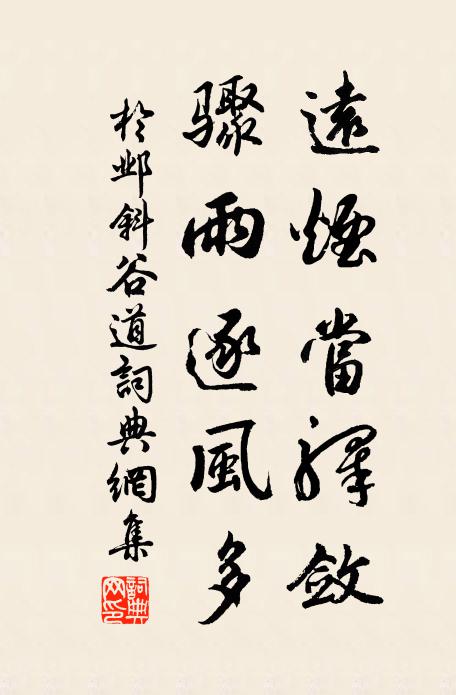 遠煙當驛斂
驟雨逐風多
於邺斜谷道詞典網集
詞典網印